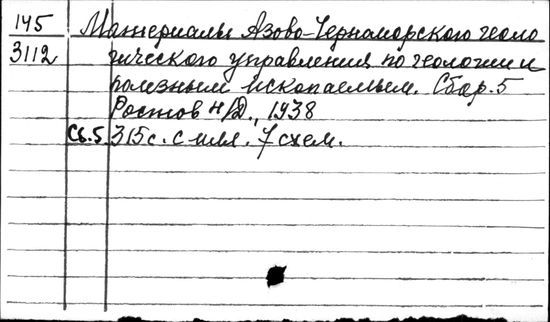 145 Материалы Азово-Черноморского геоло
3112 гического управления по геологии и
полезным ископаемым. Сбор. 5
Ростов н/Д., 1938
Сб.5. 315с. с илл. 7 схем.